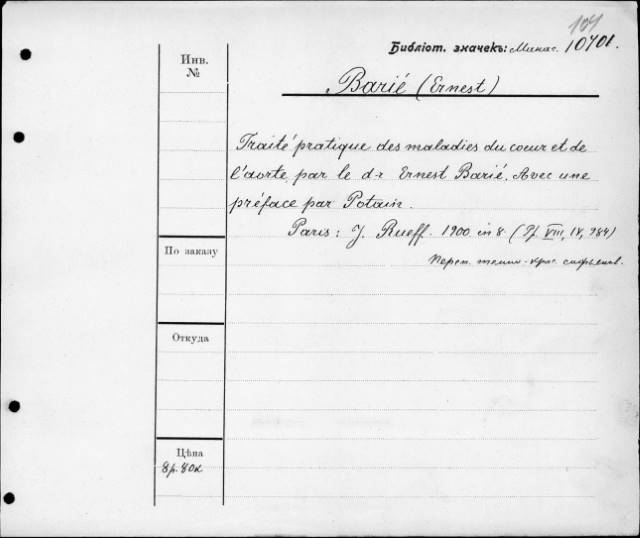 104
Библіот. значекъ: Минас. 10701.
Инв.
№
Barié (Ernest)
Traité pratique des maladies du coeur et de
l'aorte par le d-r Ernest Barié. Avec une
préface par Potain.
Paris: J. Rueff. 1900. in 8. (Pf VIII, IV, 984)
Переп. темно-крас.
По заказу
Откуда
Цѣна
8р. 80к